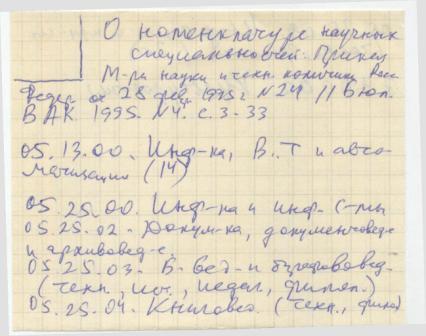 О номенклатуре научных
специальностей: Приказ
М-ра науки и техн. политики Рос.
Федер. от 28 фев. 1995 г. № 24 // Бюл.
ВАК. 1995. №4. С. 3-33
05.13.00. Инф-ка, В. Т и авто-
матизация (14)
05.25.00. Инф-ка и инф. с-мы
05.25.02 - Докум-ка, документовед-
и архивовед-е.
05.25.03. Б-вед- и библиографовед-
(техн., ист., педаг., филол.)
05.25.04. Книговед. (техн., филол)